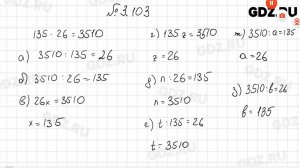 № 3.103
GDZ.RU
135 · 26 = 3510
а) 3510 : 135 = 26
б) 3510 : 26 = 135
в) 26x = 3510
x = 135
г) 135 z = 3510
z = 26
д) n : 26 = 135
n = 3510
е) t : 135 = 26
t = 3510
ж) 3510 : a = 135
a = 26
з) 3510 : b = 26
b = 135
GDZ.RU